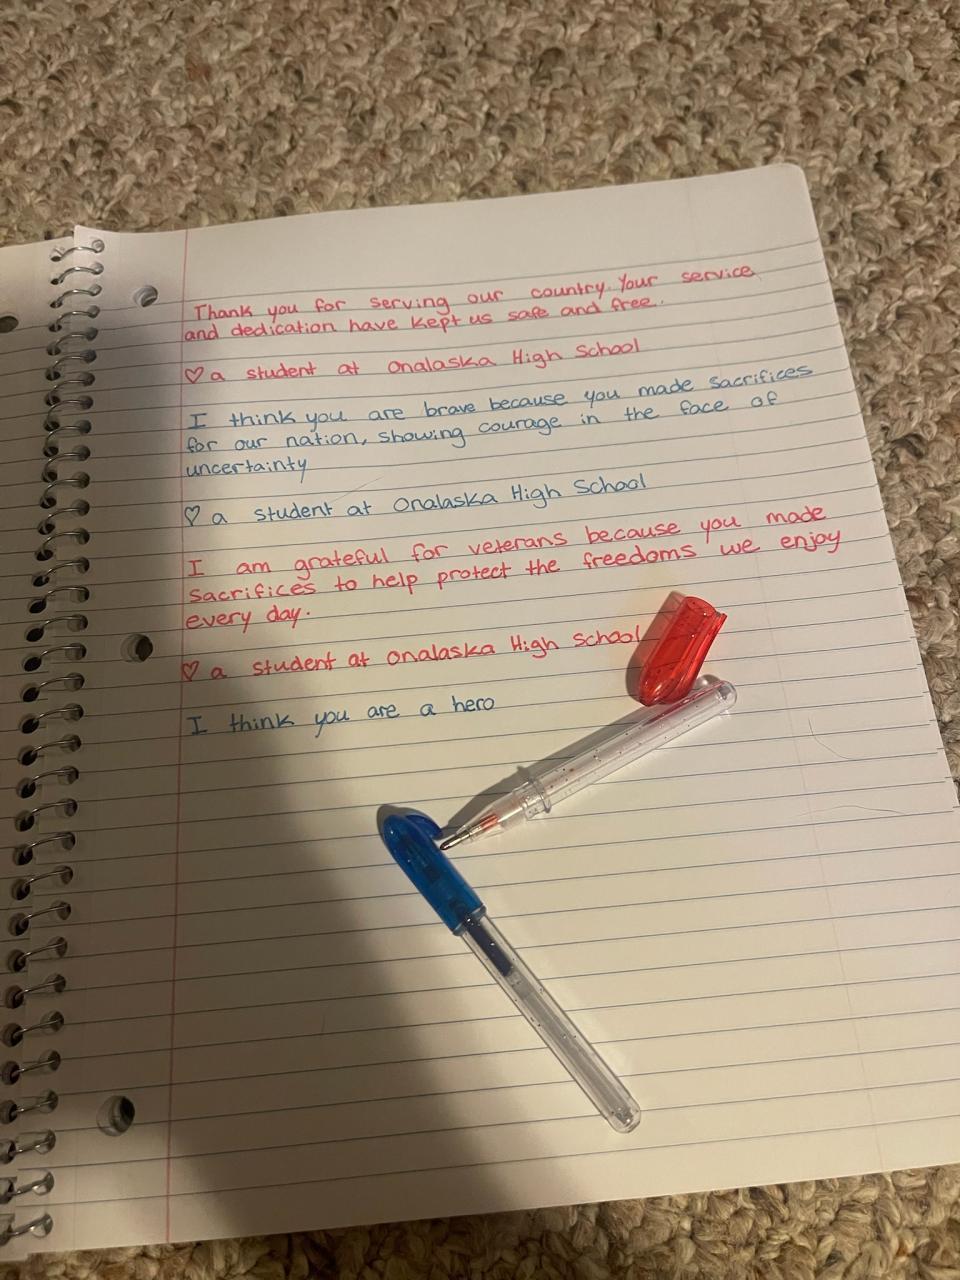 Thank you for serving our country. Your service
and dedication have kept us safe and free.
♡ a student at Onalaska High School
I think you are brave because you made sacrifices
for our nation, showing courage in the face of
uncertainty
♡ a student at Onalaska High School
I am grateful for veterans because you made
sacrifices to help protect the freedoms we enjoy
every day.
♡ a student at Onalaska High School
I think you are a hero